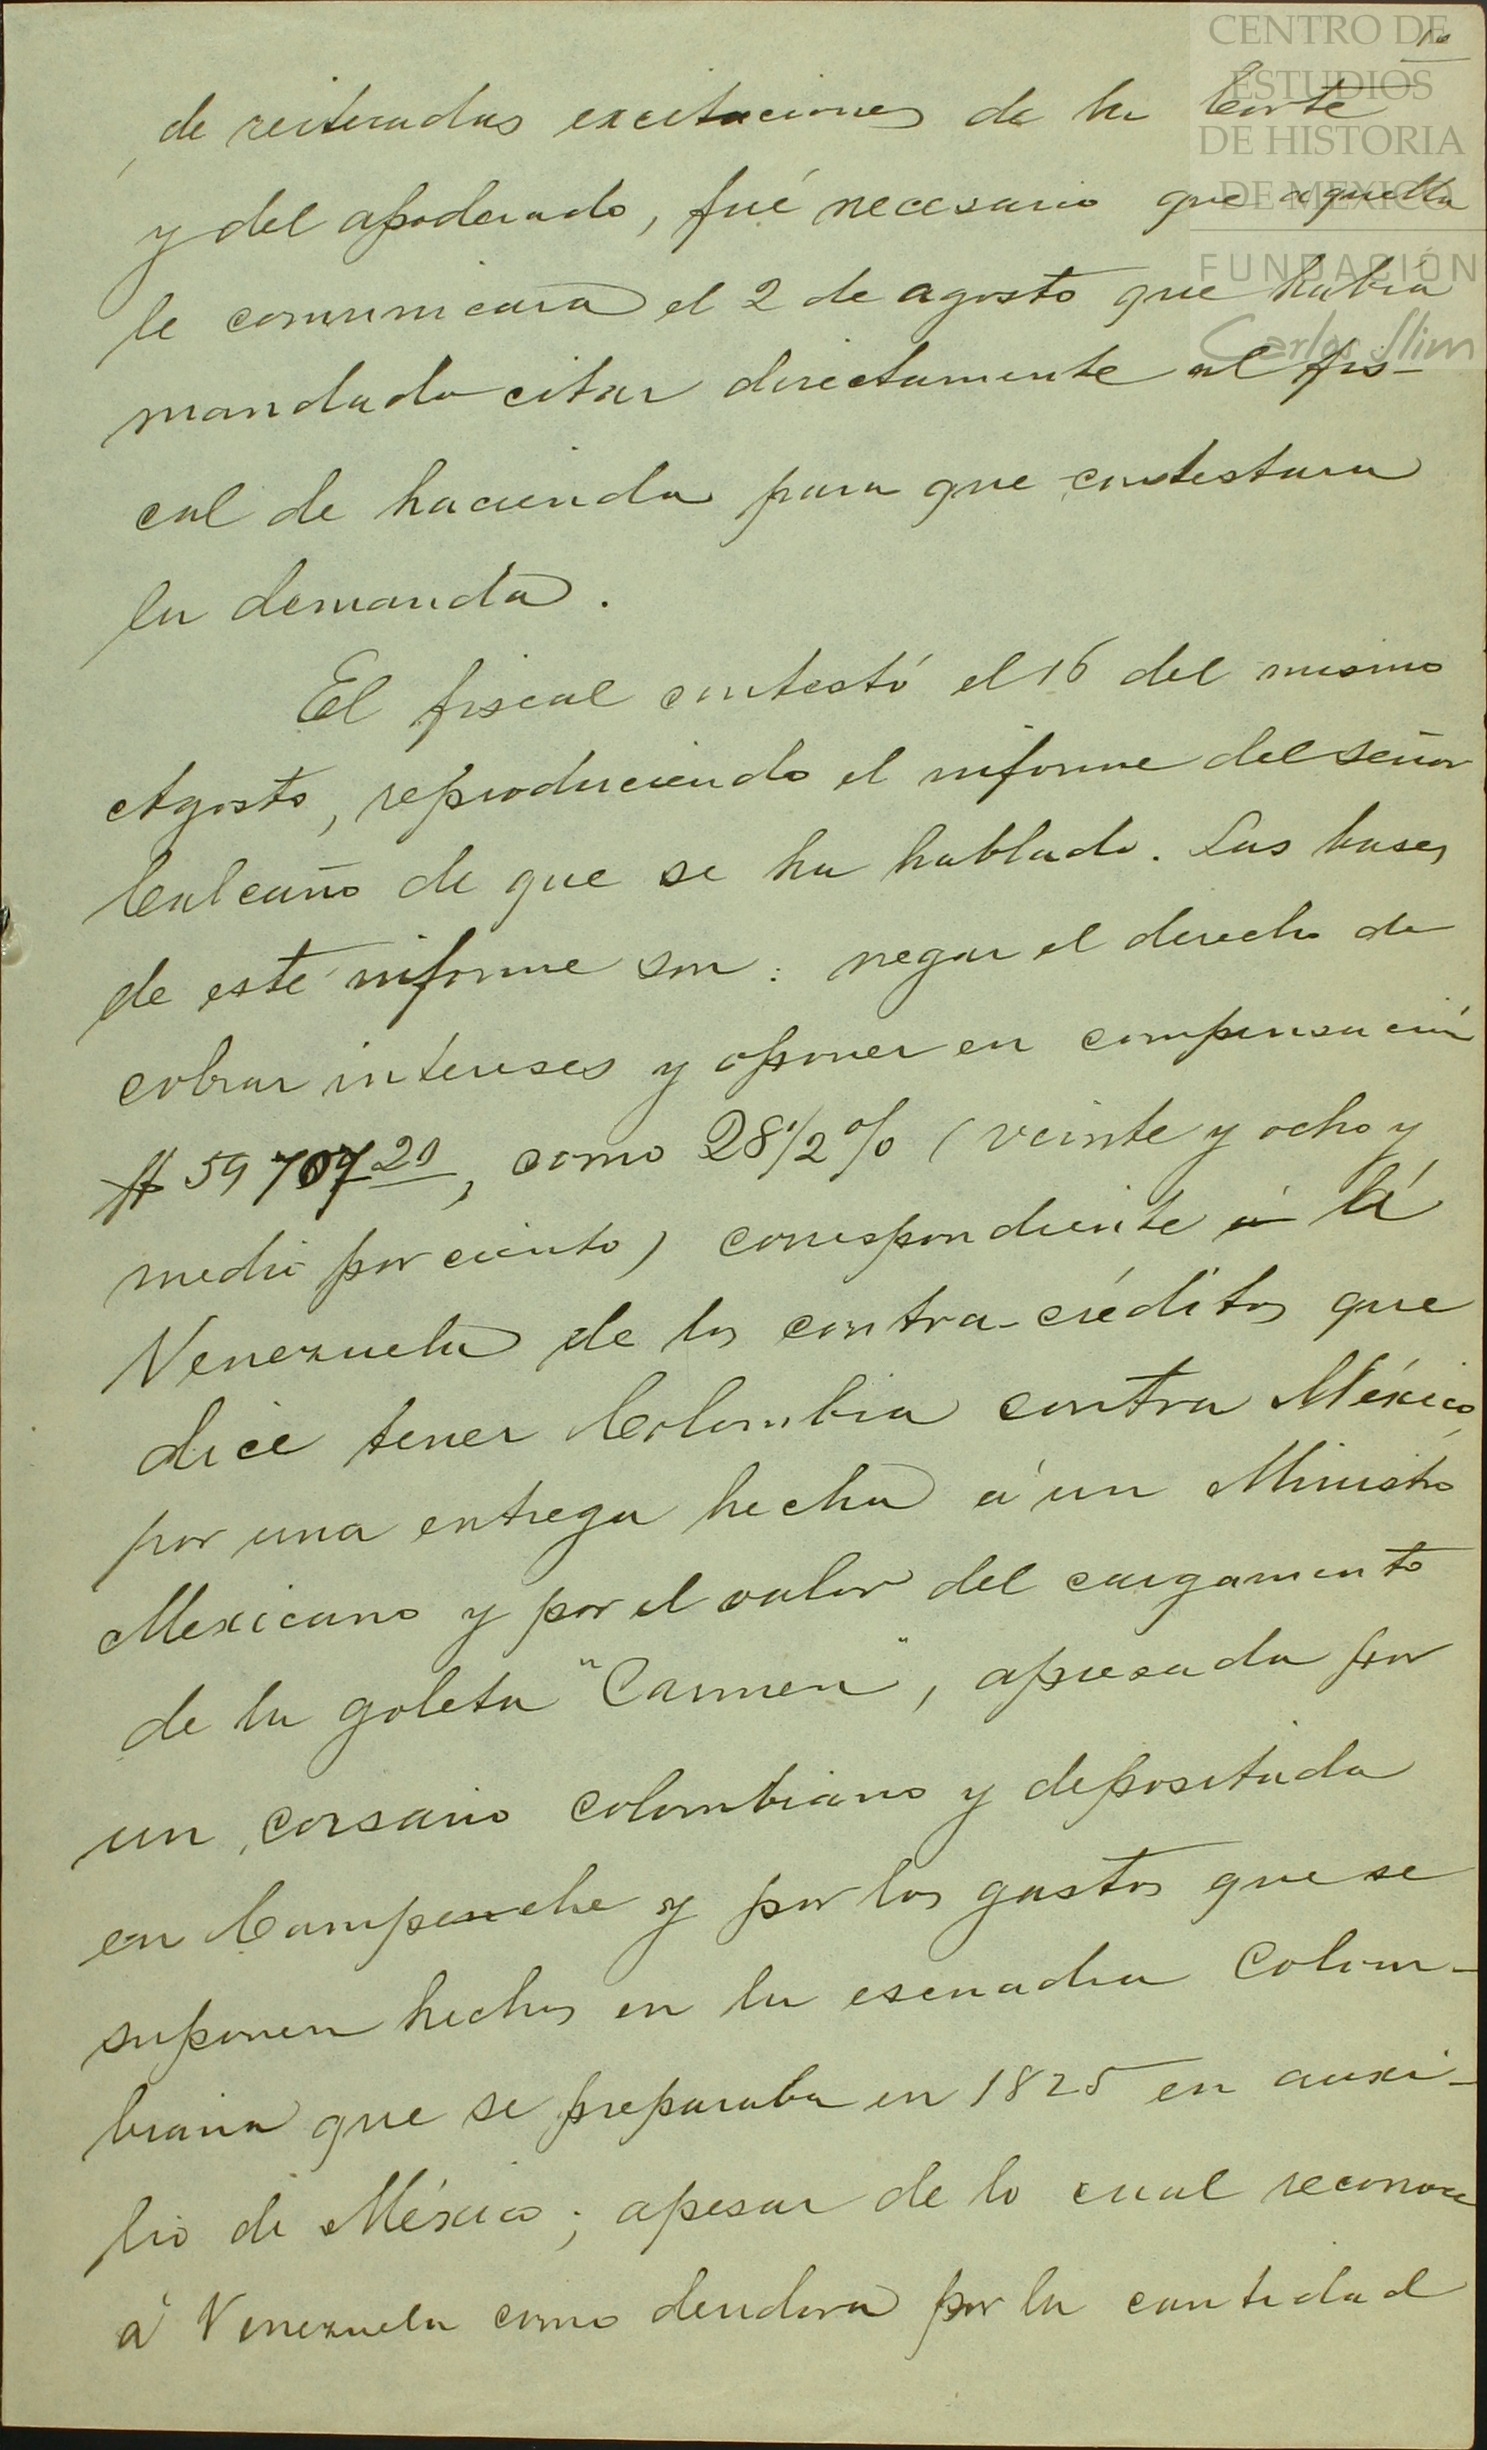 10
de reiteradas excitaciones de la Corte
y del apoderado, fué necesario que aquella
le comunicara el 2 de agosto que había
mandado citar directamente al fis-
cal de hacienda para que contestara
la demanda.
El fiscal contestó el 16 del mismo
Agosto, reproduciendo el informe del señor
Calcaño de que se ha hablado. Las bases
de este informe son: negar el derecho de
cobrar intereses y oponer en compensación
$ 59 707 20, como 28 1/2 % (veinte y ocho y
medio por ciento) correspondiente á
Venezuela de los contra-créditos que
dice tener Colombia contra México,
por una entrega hecha á un Ministro
Mexicano y por el valor del cargamento
de la goleta "Carmen", apresada por
un corsario colombiano y depositada
en Campeche y por los gastos que se
suponen hechos en la escuadra Colom-
biana que se preparaba en 1825 en auxi-
lio de México; apesar de lo cual reconoce
á Venezuela como deudora por la cantidad
CENTRO DE
ESTUDIOS
DE HISTORIA
DE MEXICO
FUNDACIÓN
Carlos Slim